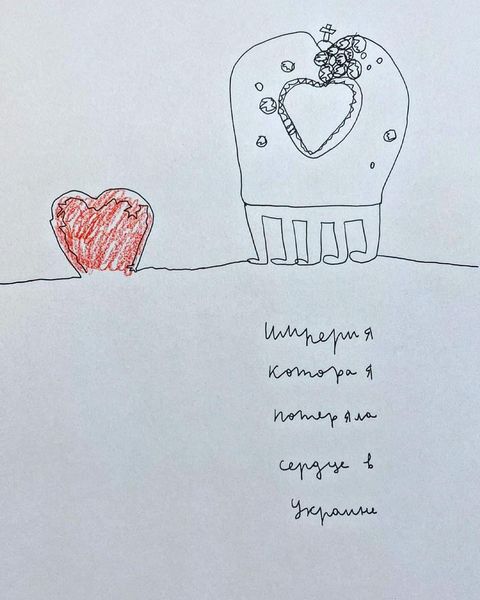 империя
которая
потеряла
сердце в
Украине